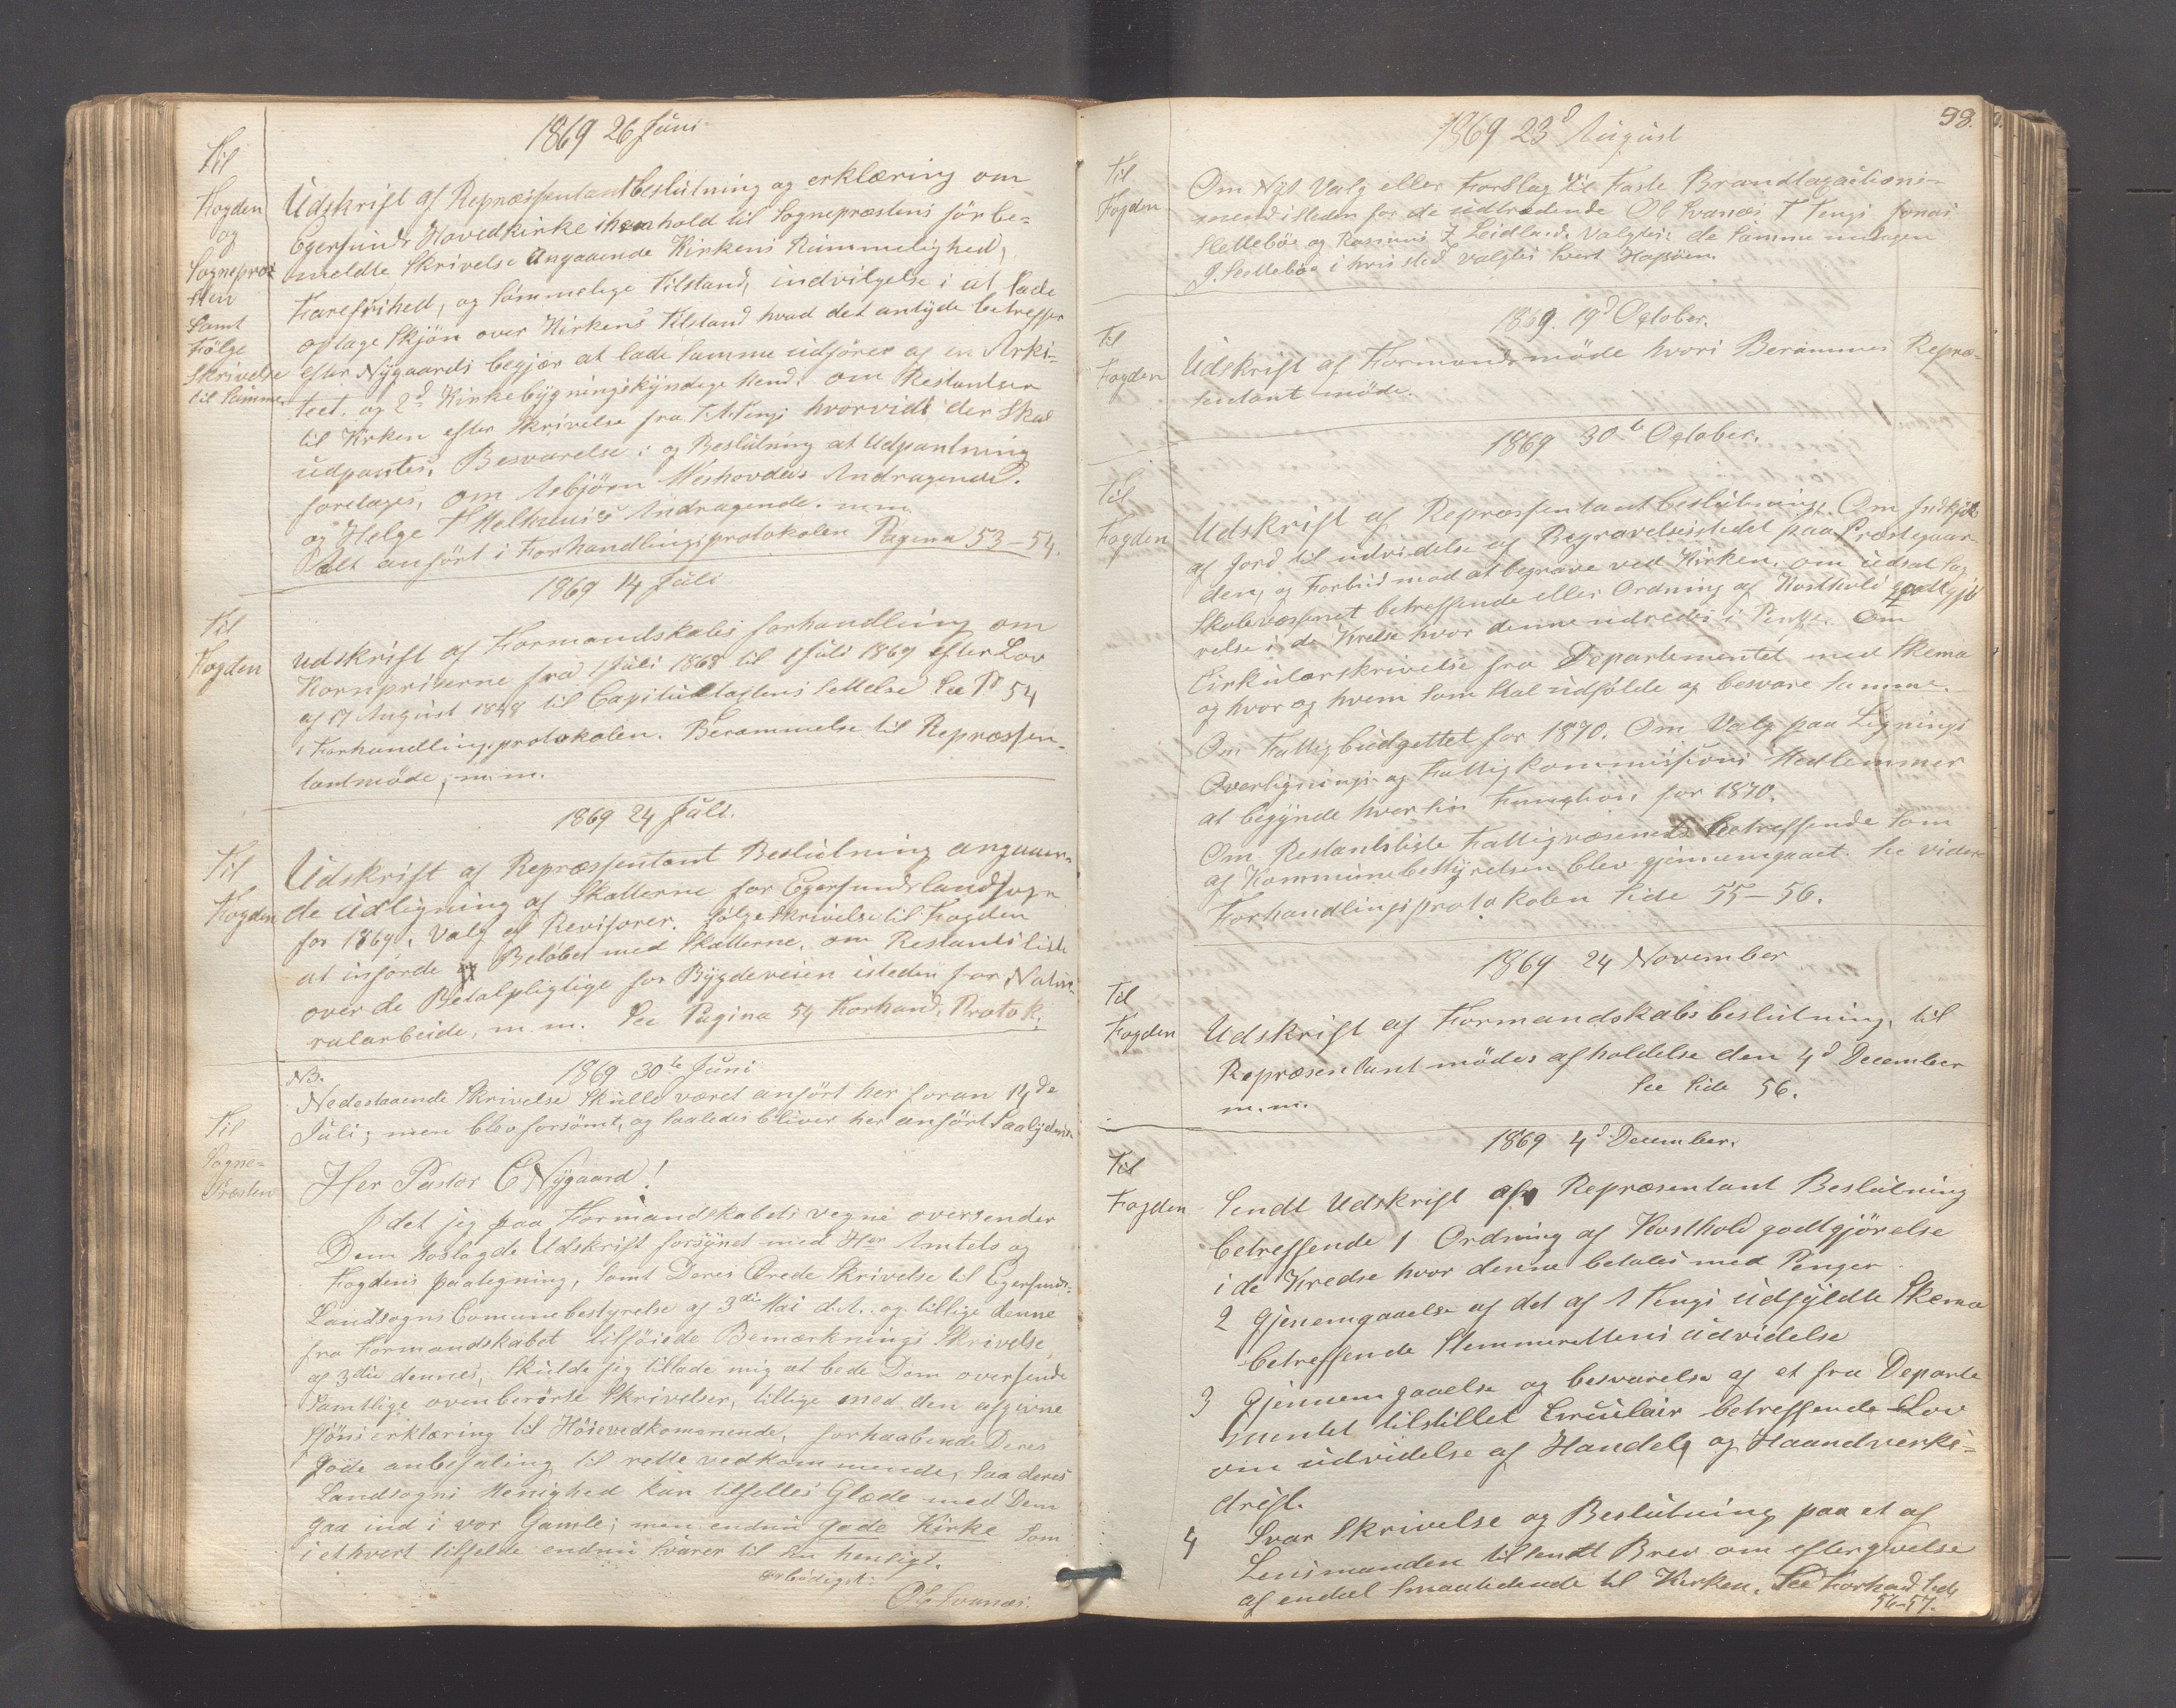 1869 26 Juni
Til
Fogden
og
Sognepræ-
sten
Samt
Følge
Skrivelse
til Samme.
Udskrift af Repræssentantbeslutning og erklæring om
Egersunds Hovedkirke i henhold til Sognepræstens før be-
meldte Skrivelse Angaaende Kirkens Rummelighed,
Farefrihed, og Sømmelige Tilstand, indvilgelse i at lade
optage Skjøn over Kirkens Tilstand hvad det antyde betreffer
efter Nygaards begjær at lade Samme udføres af en Arki-
tect. og 2de Kirkebygningskyndige Mend. om Restantser
til Kirken efter Skrivelse fra T. A. Tengs hvorvidt der Skal
udpantes. Besvarelse: og Beslutning at Udpantning
foretages, om Asbjørn Meshovdes Andragende.
og Helge T Malthuus's Andragende. m.m.
Alt anført i Forhandlingsprotokolen Pagina 53-54.
1869 14 Juli
Til
Fogden
Udskrift af Formandskabs forhandling om
Kornpriserne fra 1 Juli 1868 til 1 Juli 1869 efter Lov
af 17 August 1848 til Capitulstaxtens settelse See P. 54
i Forhandlingsprotokolen. Berammelse til Repræssen-
tantmøde, m.m.
1869 24 Juli.
Til
Fogden
Udskrift af Repræssentant Beslutning angaaen-
de udligning af Skatterne for Egersunds landsogn
for 1869, Valg af Revisorer. følgeskrivelse til Fogden
at inførde Beløbet med Skatterne, om Restantsliste
over de Betalpligtige for Bygdeveien isteden for Natu-
ralarbeide, m.m. See Pagina 54 Forhand. Protok.
1869 30te Juni
NB.
Nedestaaende Skrivelse Skulle været anført her foran 14de
Juli; men blev forsømt, og saaledes bliver her anført Saalydende
Til
Sogne-
Præsten
Her Pastor C Nygaard!
I det jeg paa Formandskabets vegne oversender
Dem hoslagde Udskrift forsynet med Her Amtets og
Fogdens paategning, Samt Deres Ærede Skrivelse til Egersunds-
Landsogns Comunebestyrelse af 3die Mai d.A. og tillige denne
fra Formandskabet tilføiede Bemærknings Skrivelse
af 3die dennes, Skulde jeg tillade mig at bede Dem oversende
Samtlige ovenberørte Skrivelser, tillige med den afgivne
Skjøns erklæring til Høievedkomenende, forhaabende Deres
gode anbefaling til rette vedkommende, Saa deres
Landsogns Menighed kan tilfelles Glæde med Dem
Gaa ind i vor Gamle; men endnu gode Kirke Som
i et hvert tilfelde endnu Svarer til Sin hensigt.
Ærbødigst:
O. Svanæs.
98.
1869 23d August
Til
Fogden
Om Nyt Valg eller Forslag til Faste Brandtaxations-
mend isteden for de udtrædende Ol Svanæs T Tengs Jonas
Slettebøe og Rasmus Z Leidland. Valgtes de Samme undtagen
J. Slettebøe i hvis sted valgtes Sivert Hafsøen.
1869. 19d October.
Til
Fogden
Udskrift af Formandsmøde hvori Berammes Repræ-
sentant møde.
1869 30te October.
Til
Fogden
Udskrift af Repræssentant beslutning. Om Indkjøb
af Jord til udvidelse af Begravelsesstedet paa Prestegaar-
den, og Forbud mod at begrave ved Kirken. om udsat Sag
Skolevæssenet betreffende eller Ordning af Kosthold godtgjø-
relse i de Kredse hvor denne udredes i Penge. Om
Cirkulærskrivelse fra Departementet med Skema
og hvor og hvem Som Skal udfølde og besvare Samme.
Om Fattigbudgettet for 1870. Om Valg paa Lignings
Overlignings og Fattigkommissions Medlemmer
at begynde hver Sin Funcktion for 1870.
Om Restantsliste Fattigvæsenets betreffende Som
af Kommunebestyrelsen blev gjennemgaaet. See videre
Forhandlingsprotokolen Side 55-56.
1869 24 November
Til
Fogden
Udskrift af Formandskabsbeslutning, til
Repræsentantmødes afholdelse den 4d December
m.m. See Side 56.
1869 4d December.
Til
Fogden
Sendt Udskrift af Repræsentant Beslutning
betreffende 1 Ordning af Kosthold godtgjørelse
i de Kredse hvor denne betales med Penger
2 Gjenemgaaelse af det af A Tengs udfyldte Skema
betreffende Stemmerettens udvidelse
3 Gjennemgaaelse og besvarelse af et fra Departe
mentet tilstillet Circulair betreffende Lov
om udvidelse af Handels og Haandverks-
drift.
4 Svar Skrivelse og Beslutning paa et af
Lensmanden tilsendt Brev om eftergivelse
af endeel Smaatiende til Kirken. See Forhand Side
56-57.